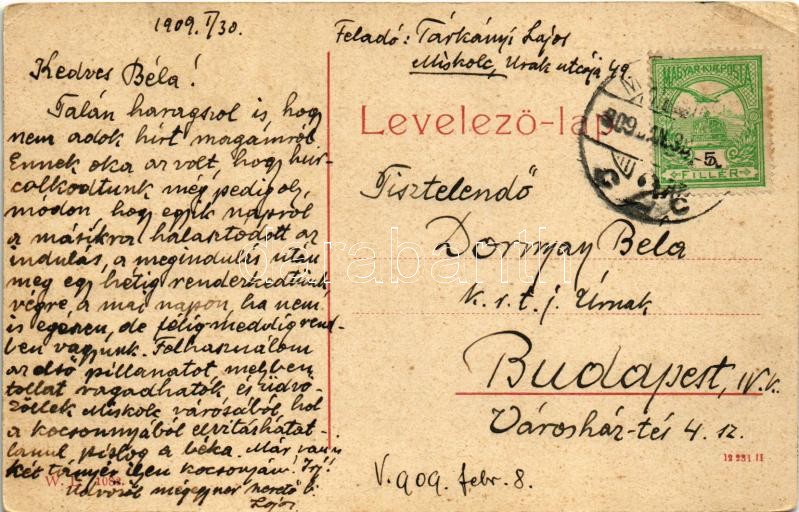 1909. I/30.
Feladó: Tárkányi Lajos
Miskolc, Urak utcája 49.
Kedves Béla!
Talán haragszol is, hogy
nem adok hírt magamról.
Ennek oka az volt, hogy hur-
colkodtunk még pedig oly
módon, hogy egyik napról
a másikra halasztodott az
indulás, a megindulás után
meg egy hétig rendezkedtünk
végre, a mai napon, ha nem
is egészen, de félig-meddig rend-
ben vagyunk. Felhasználom
az első pillanatot melyben
tollat ragadhatok és üdvö-
zöllek Miskolc városából, hol
a kocsonnyából elvitázhatat-
lanul pislog a béka. Már van
két tányér ilyen kocsonyám. Írj!
Üdvözöl mégegyszer szerető b.
Lajos
MAGYAR KIR. POSTA
5
FILLÉR
Levelező-lap
Tisztelendő
Dormyay Béla
k. r. t. j. Úrnak
Budapest, IV. k.
Városház-tér 4. sz.
V. 909. febr. 8.
W. L. 1083.
12 231 II
darabanth